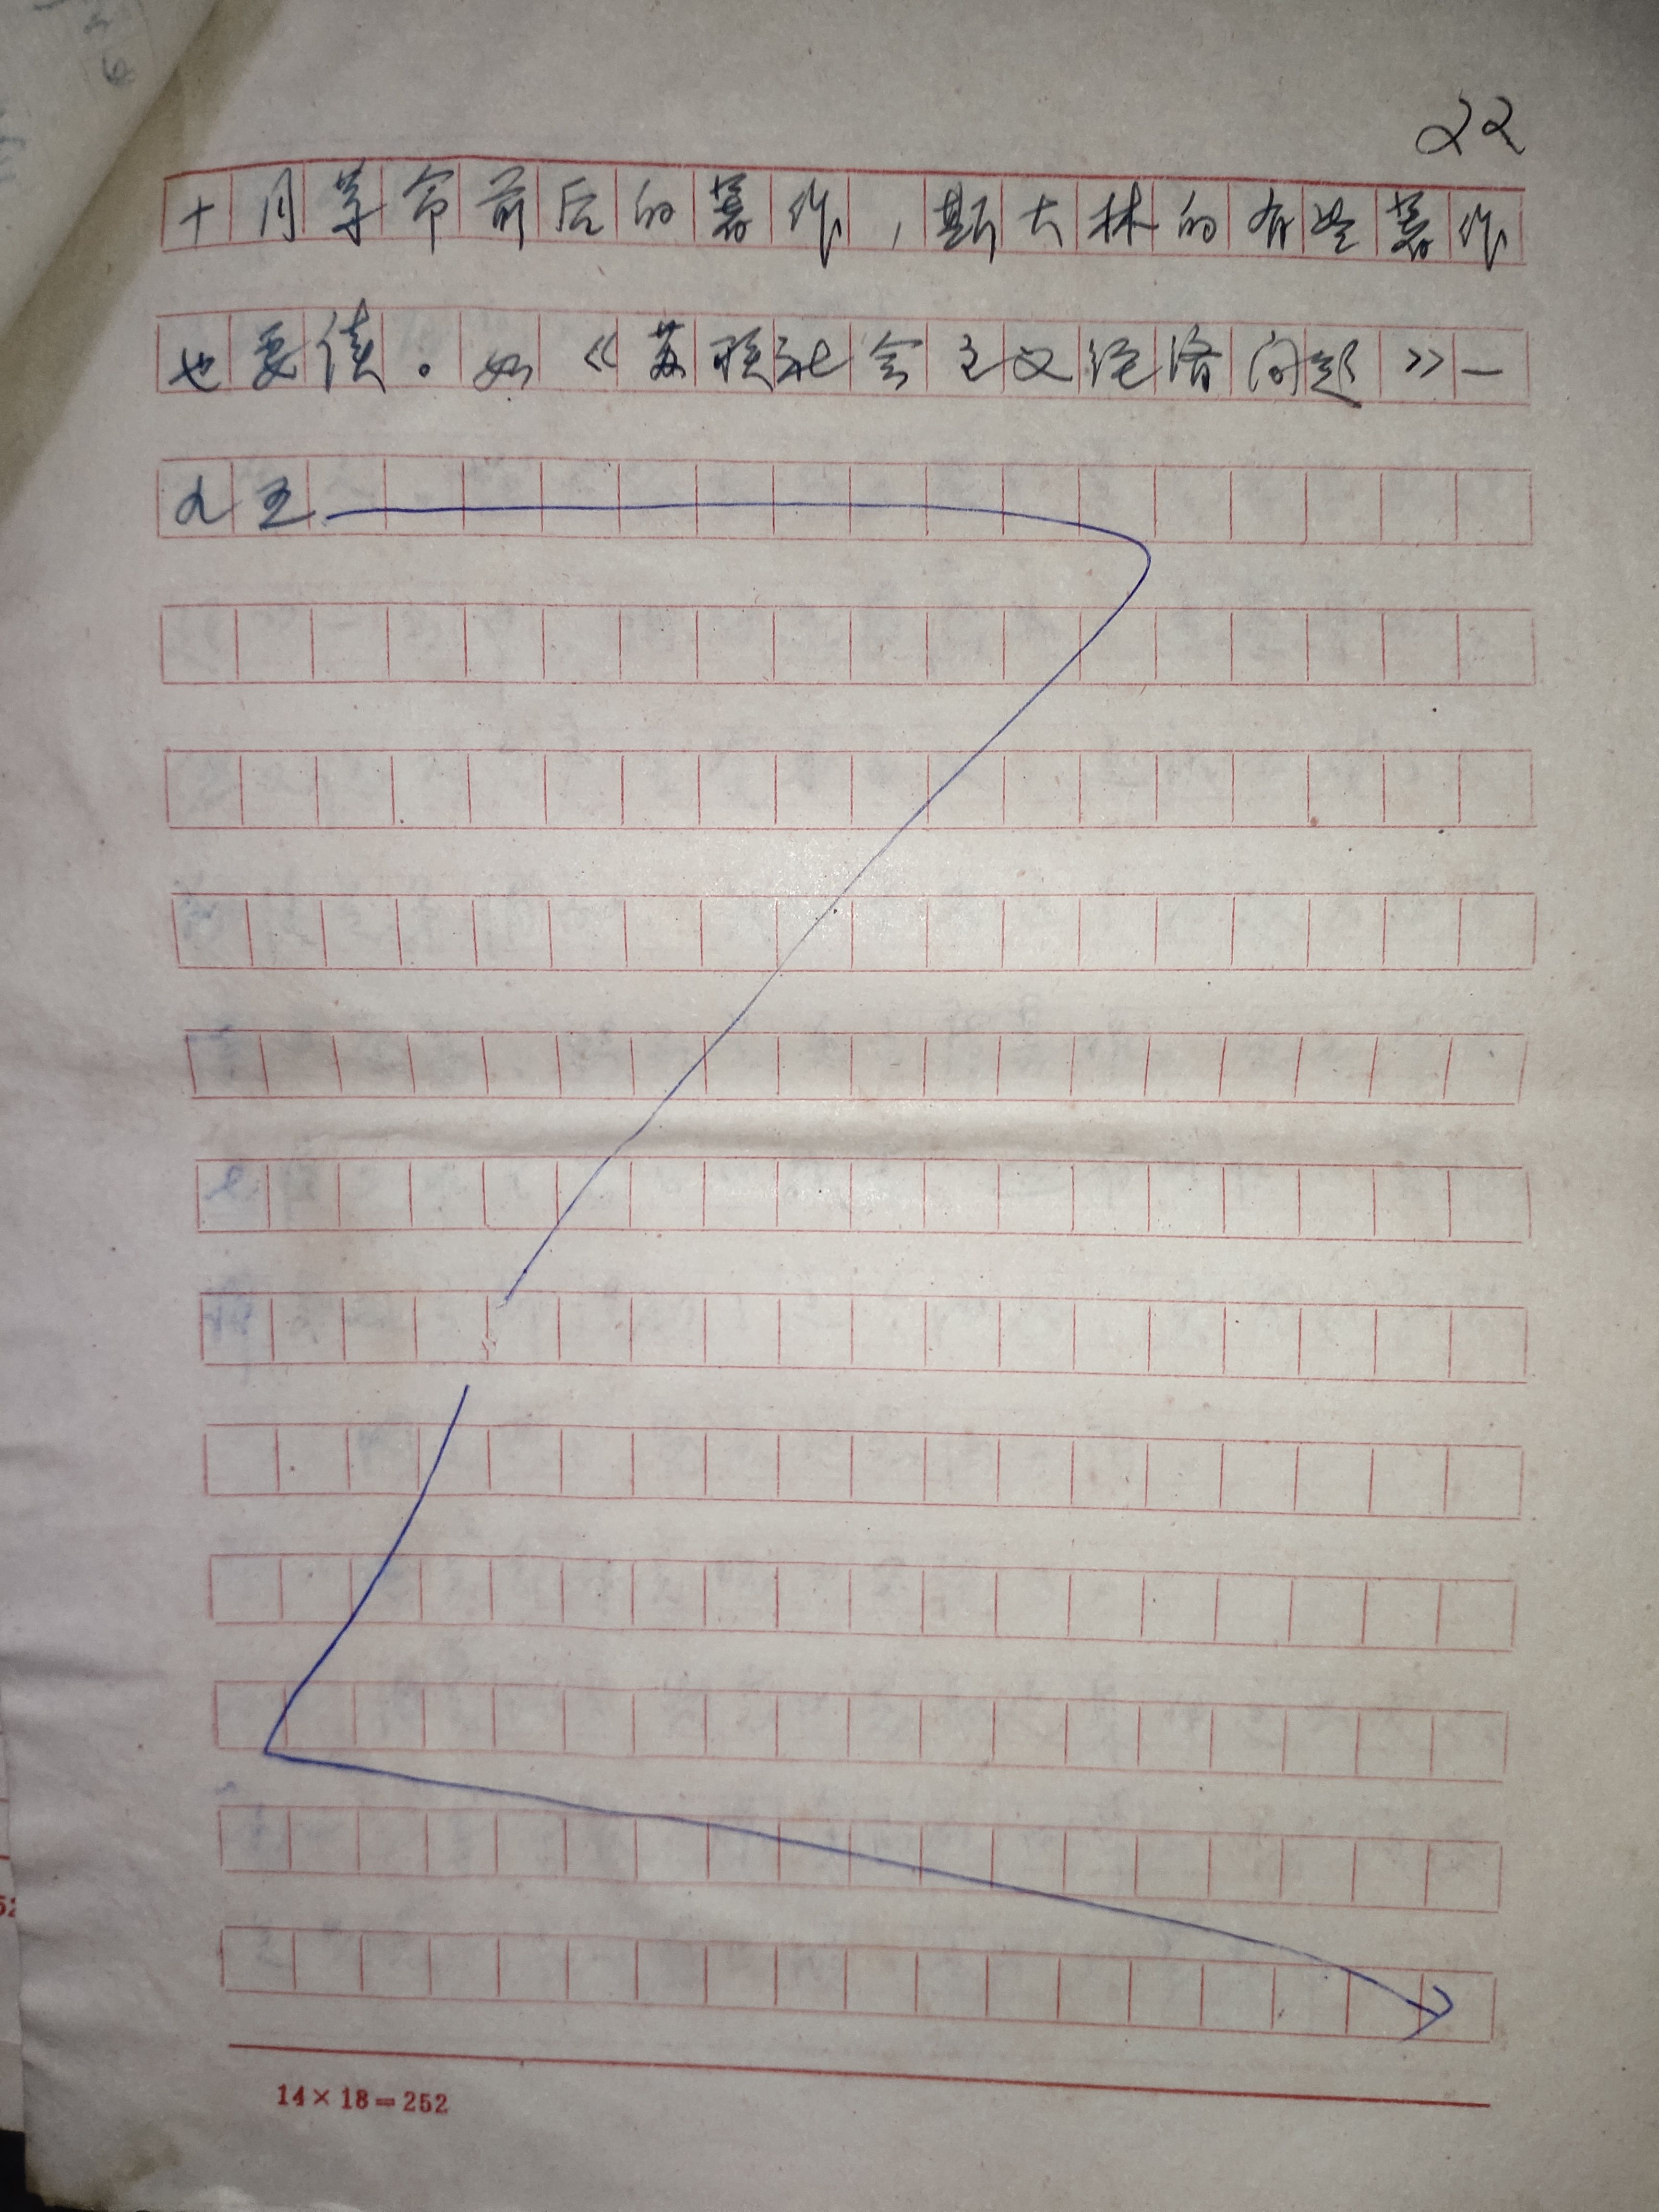 22
十月革命前后的著作,斯大林的有些著作
也要读。如《苏联社会主义经济问题》一
14×18=252